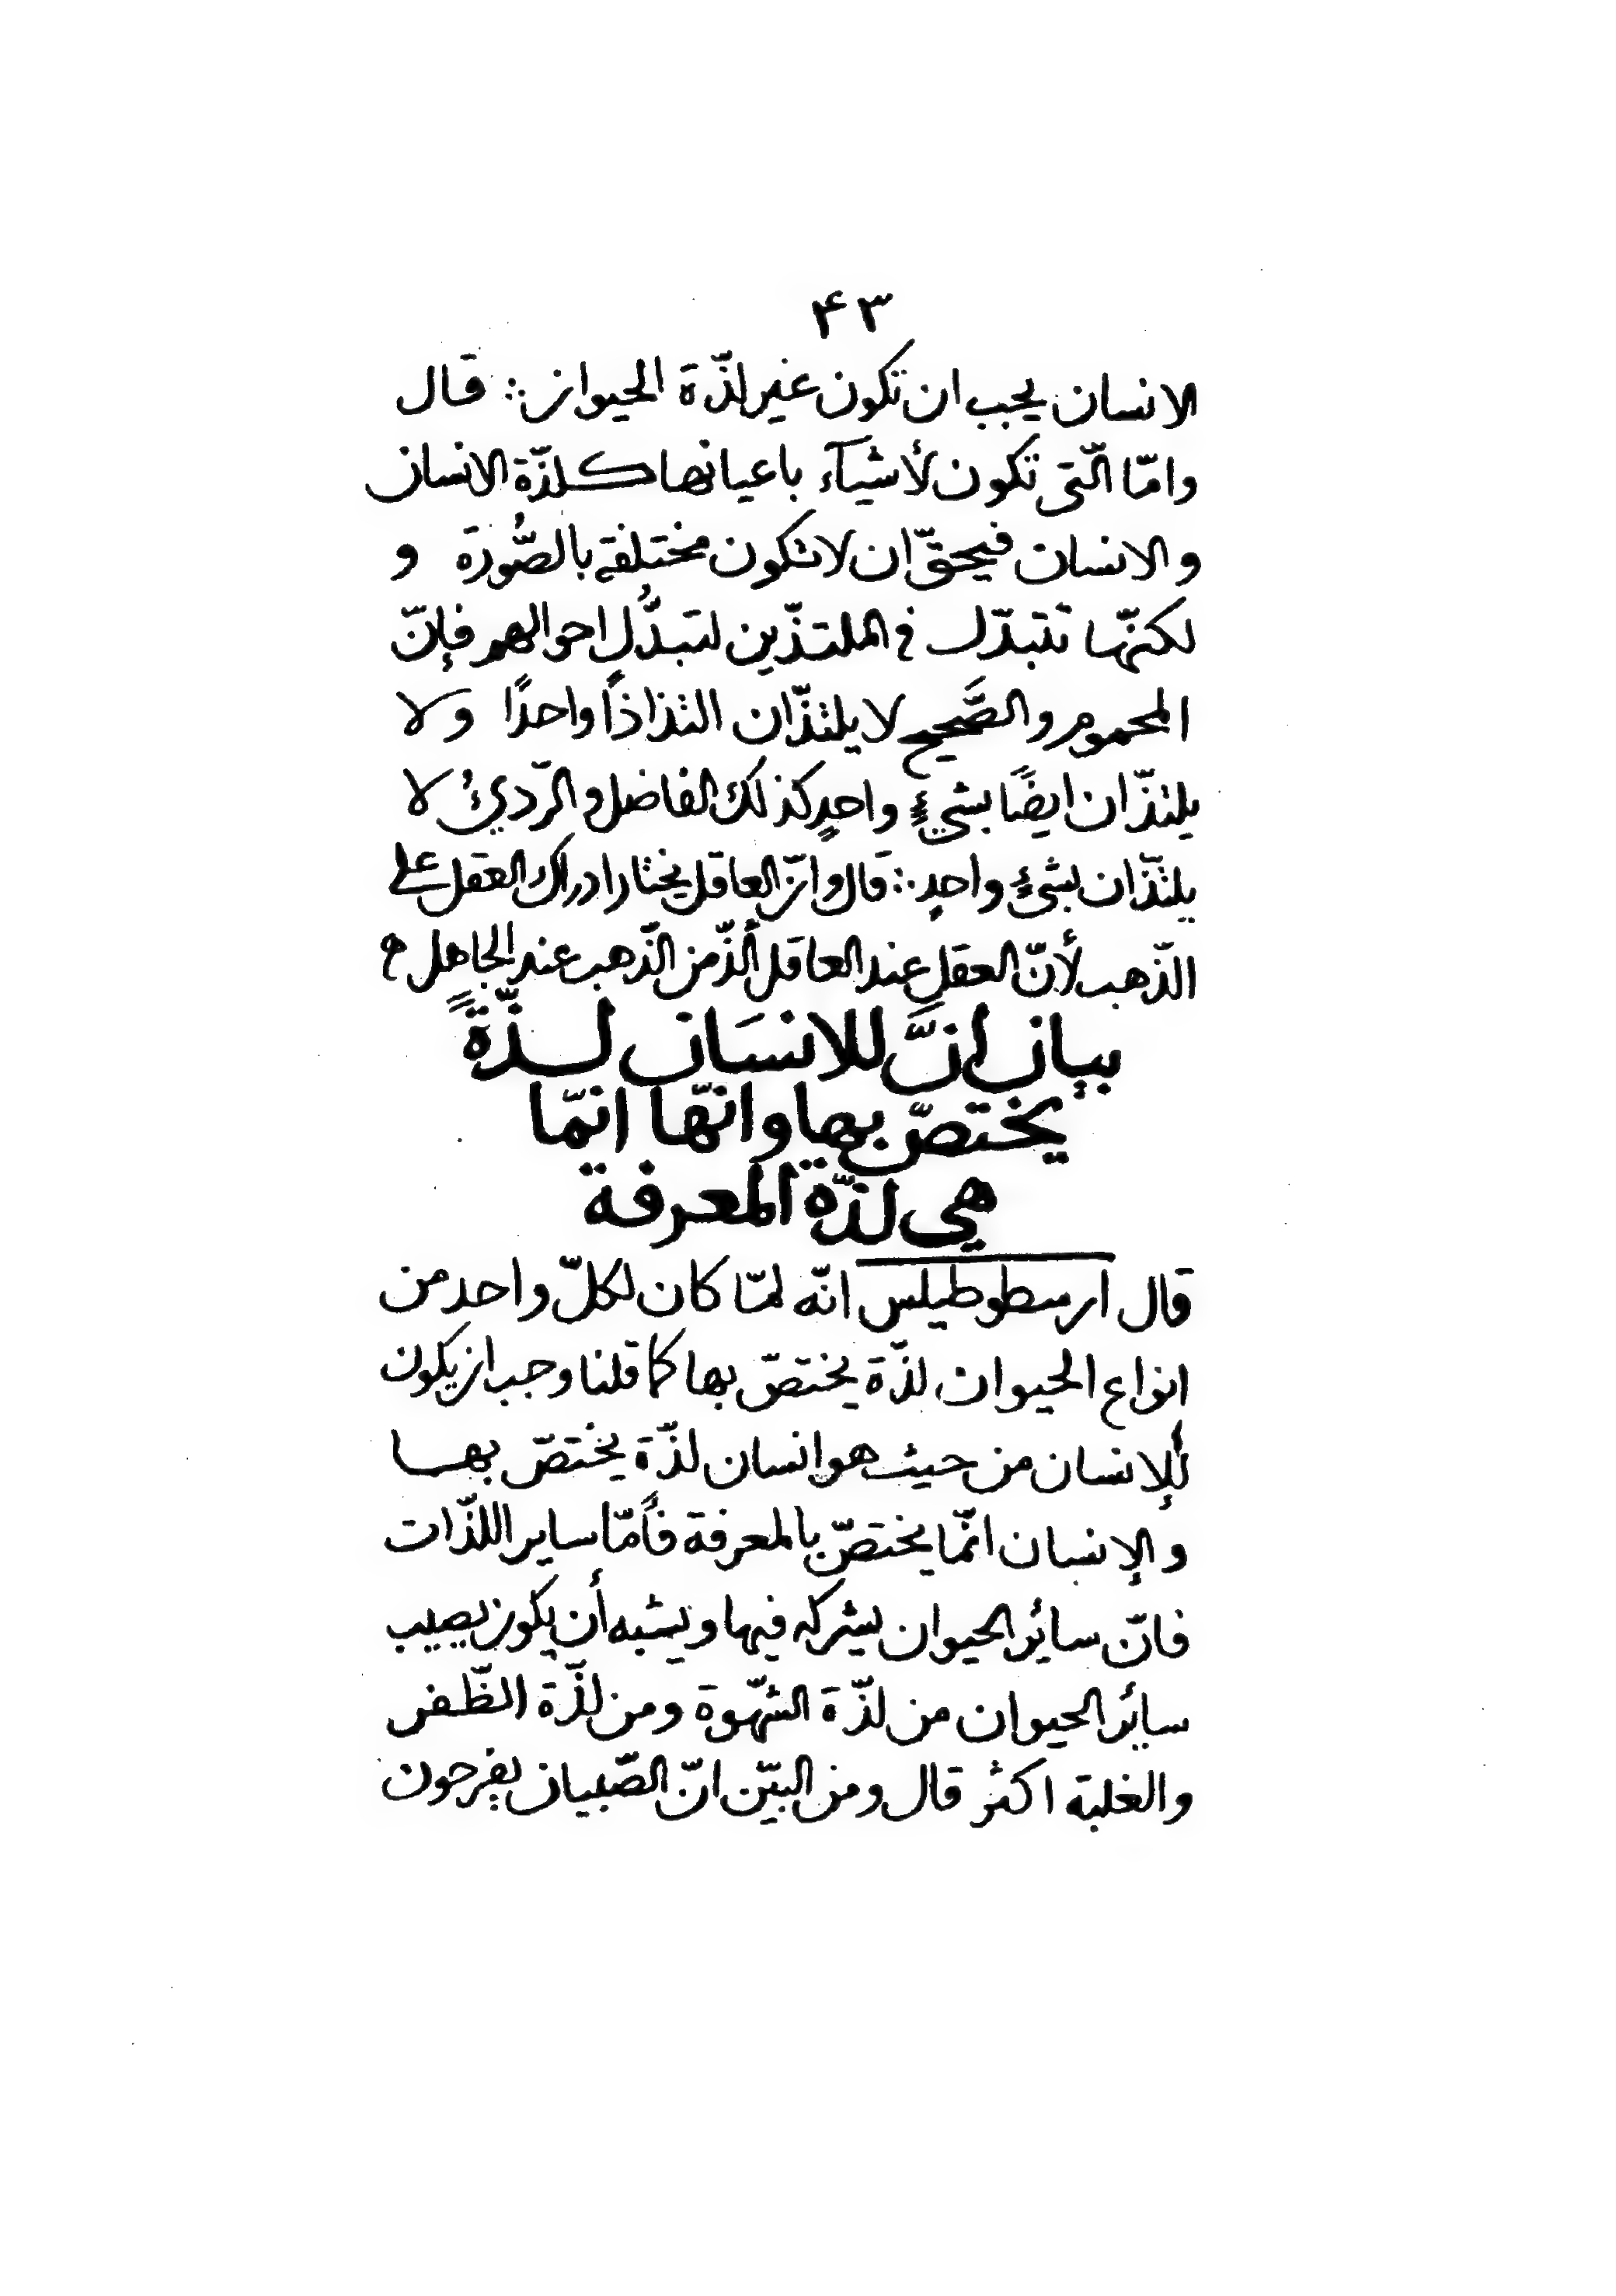 ۴۳
الانسان يجب ان تكون غير لذّة الحيوان ∴ قال
وامّا الّتى تكون لأشيآء باعيانها كلذّة الانسان
والانسان فيحقّ ان لا تكون مختلفة بالصُّورة و
لكنّها تتبدّل فى الملتذّين لتبدُّلِ احوالهم فإنّ
المحموم والصَّحيح لا يلتذّان التذاذًا واحدًا ولا
يلتذّان ايضًا بشيءٍ واحدٍ كذلك الفاضل والرّديُ لا
يلتذّان بشئٍ واحدٍ ∴ قال وانّ العاقل يختار ادراك العقل على
الذّهب لأنّ العقل عند العاقل ألذّ من الذّهب عند الجاهل
بيان انَّ للانسَان لذّةً
يختصّ بها وانّها انّما
هي لذّة المعرفة
قال ارسطوطيلس انّه لمّا كان لكلّ واحد من
انواع الحيوان لذّة يختصّ بها كما قلنا وجب ان يكون
للإنسان من حيث هو انسان لذّة يختصّ بها
والإنسان انّما يختصّ بالمعرفة فأمّا ساير اللذّات
فانّ سائر الحيوان يشركه فيها ويشبه أن يكون نصيب
سائر الحيوان من لذّة الشّهوة ومن لذّة الظّفر
والغلبة اكثر قال ومن البيّن انّ الصّبيان يفرحون